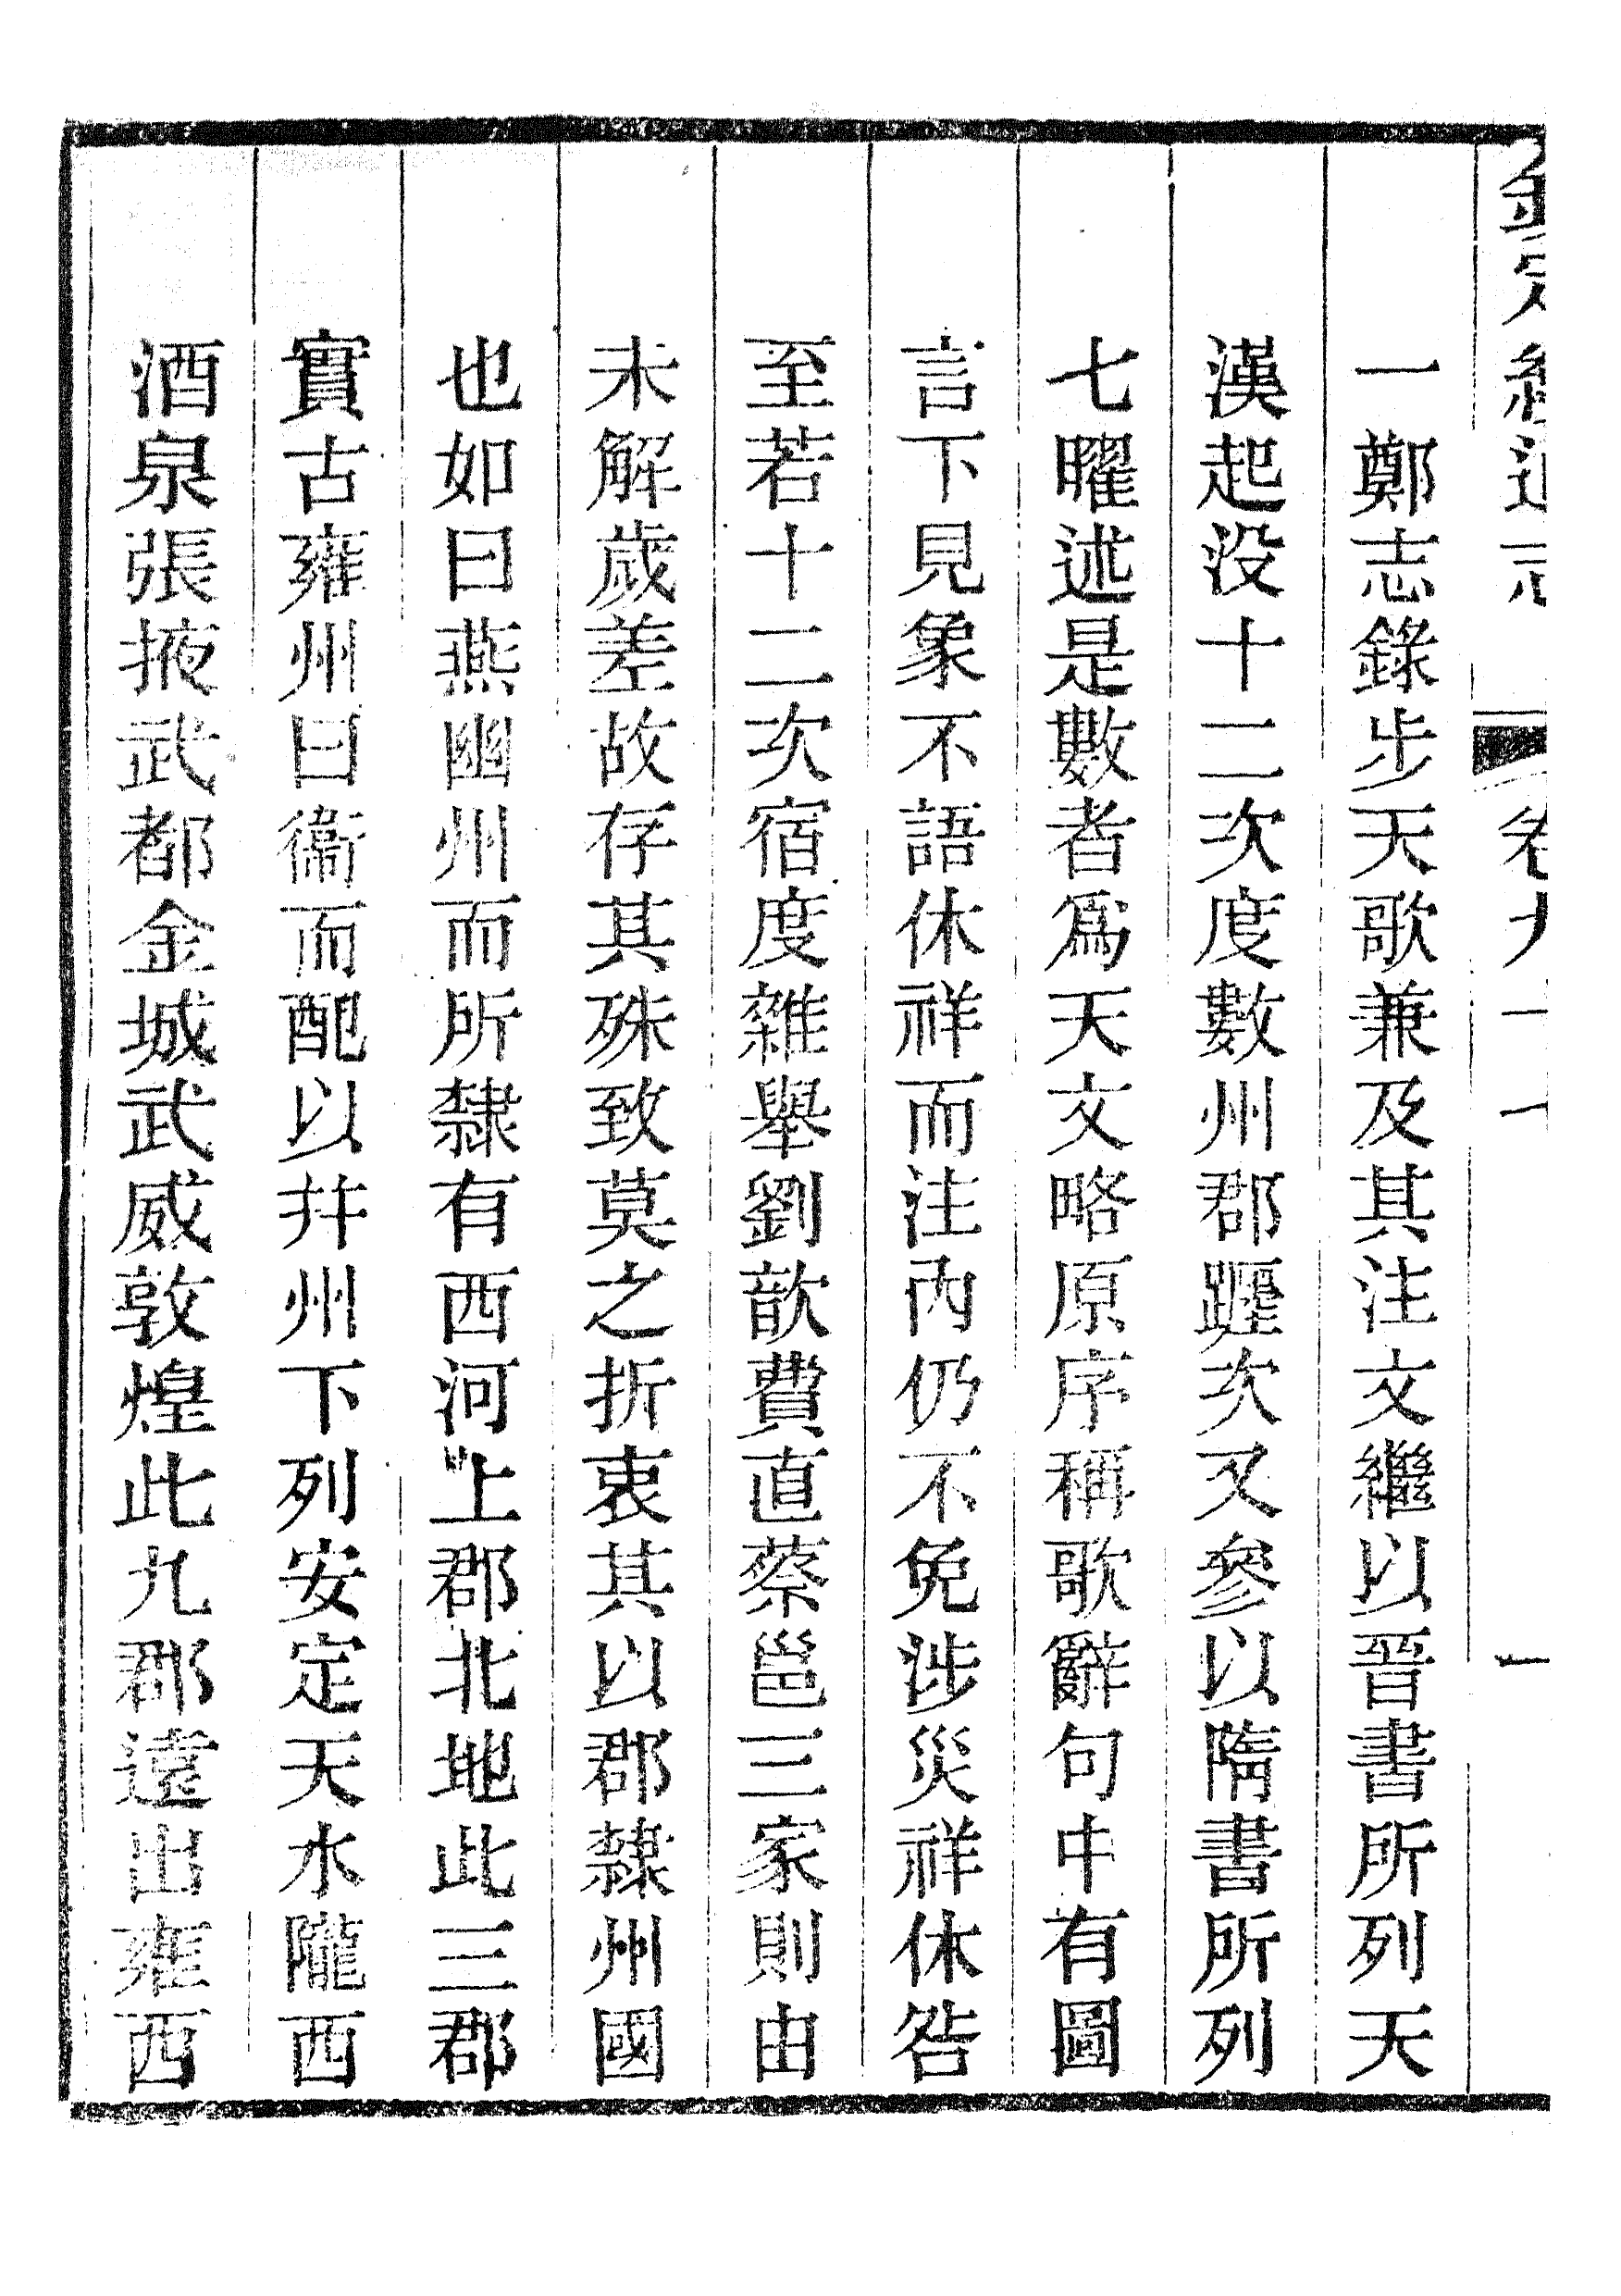 一鄭志錄步天歌兼及其注文繼以晉書所列天
漢起没十二次度數州郡躔次又參以隋書所列
七曜述是數者爲天文略原序稱歌辭句中有圖
言下見象不語休祥而注内仍不免涉災祥休咎
至若十二次宿度雜舉劉歆費直蔡邕三家則由
未解歲差故存其殊致莫之折衷其以郡隸州國
也如曰燕幽州而所隸有西河上郡北地此三郡
實古雍州曰衞而配以幷州下列安定天水隴西
酒泉張掖武都金城武威敦煌此九郡遠出雍西